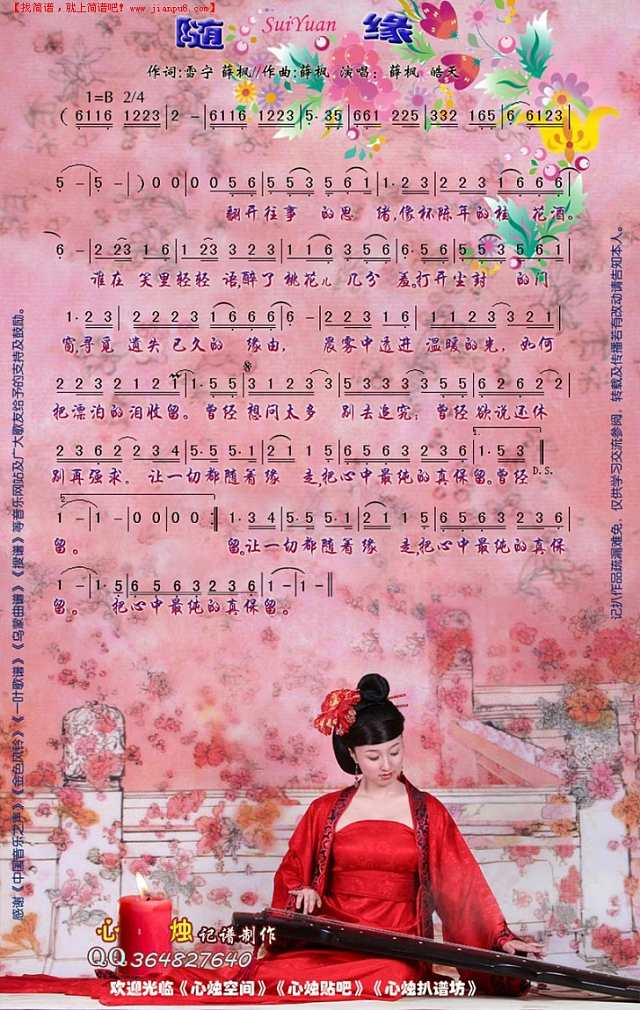 【找简谱，就上简谱吧！www.jianpu8.com】
随 SuiYuan 缘
作词:雷宁 薛枫//作曲:薛枫 演唱: 薛枫 皓天
1=B 2/4
( 6116 1223 | 2 - | 6116 1223 | 5· 35 | 661 225 | 332 165 | 6 6123 |
5 - | 5 - | ) 0 0 | 0 0 5 6 | 5 5 3 5 6 1 | 1· 2 3 | 2 2 3 1 6 6 6 |
翻开往事 的思 绪,像杯陈年的桂 花酒。
6 - | 2 23 1 6 | 1 2· 3 2 3 | 1 1 6 3 5 | 6· 5 6 | 5 5 3 5 6 1 |
谁在 笑里轻轻 语,醉了 桃花儿 几分 羞,打开尘封 的门
1· 2 3 | 2 2 2 2 3 | 2 2 1 6 | 6 - | 2 2 3 1 6 | 1 2 3· 2 3 |
窗,寻觅 遗失 已久的 缘由, 晨雾中透进 温暖的光, 如何
2 2 3 2 1 2 1 | 1· 5 5 | 3 1 2 3 3 | 5 3· 5 5 | 6 2 6 2 2 |
把漂泊的泪收留。曾经 想问太多 别去追究, 曾经欲说还休
2 3 6 2 2 3 4 | 5· 5 5· 1 | 2 1 1 5 | 6 5 6 3 2 3 6 | 1· 5 3 | D.S.
别再强求。 让一切都随着缘 走,把心中最纯的真保留。曾经
1 - | 1 - | 0 0 | 0 0 :| 1· 3 4 | 5· 5 5· 1 | 2 1 1 5 | 6 5 6 3 2 3 6 |
留。 留。让一切都随着缘 走,把心中最纯的真保
1 - | 1· 5 | 6 5 6 3 2 3 6 | 1 - | 1 - ||
留。 把心中最纯的真保留。
感谢《中国音乐之声》《金色风铃》《一叶歌谱》《乌蒙曲谱》《搜谱》等音乐网站及广大歌友给予的支持及鼓励。
记扒作品疏漏难免，仅供学习交流参阅，转载及传播若有改动请告知本人。
心 烛 记谱制作
QQ 364827640
欢迎光临《心烛空间》《心烛贴吧》《心烛扒谱坊》